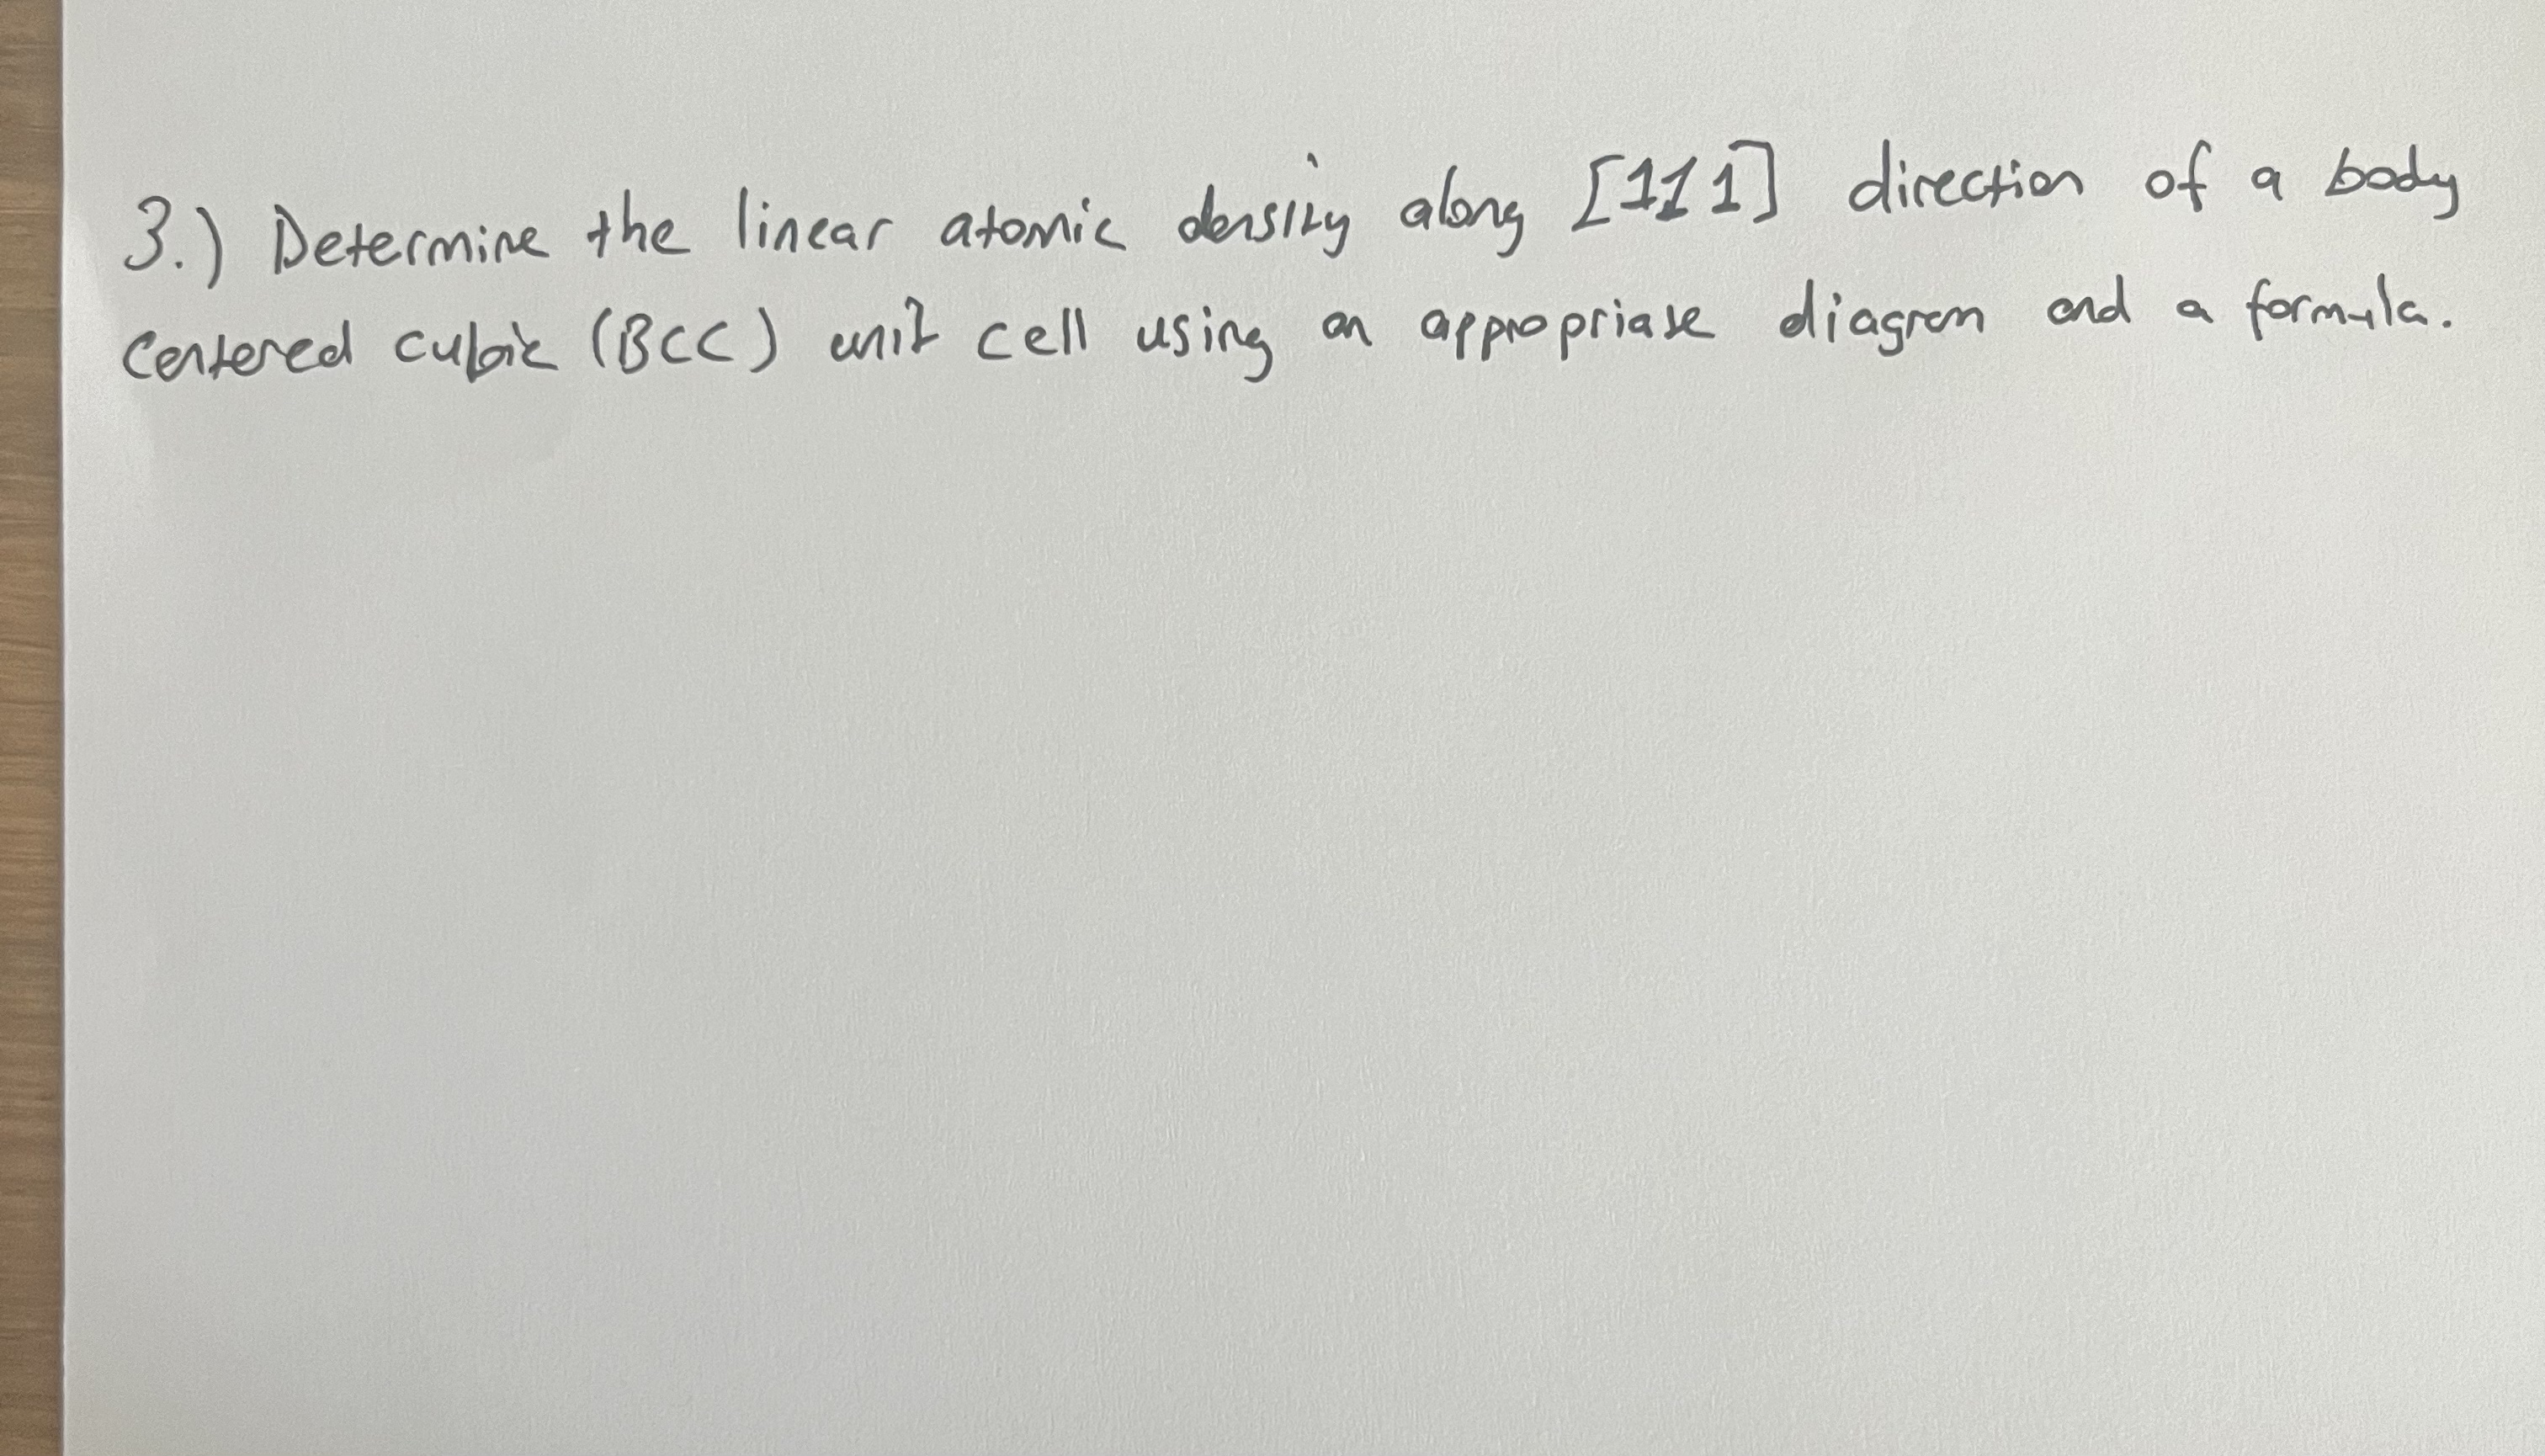 3.) Determine the linear atomic density along [111] direction of a body
centered cubic (BCC) unit cell using an appropriate diagram and a formula.